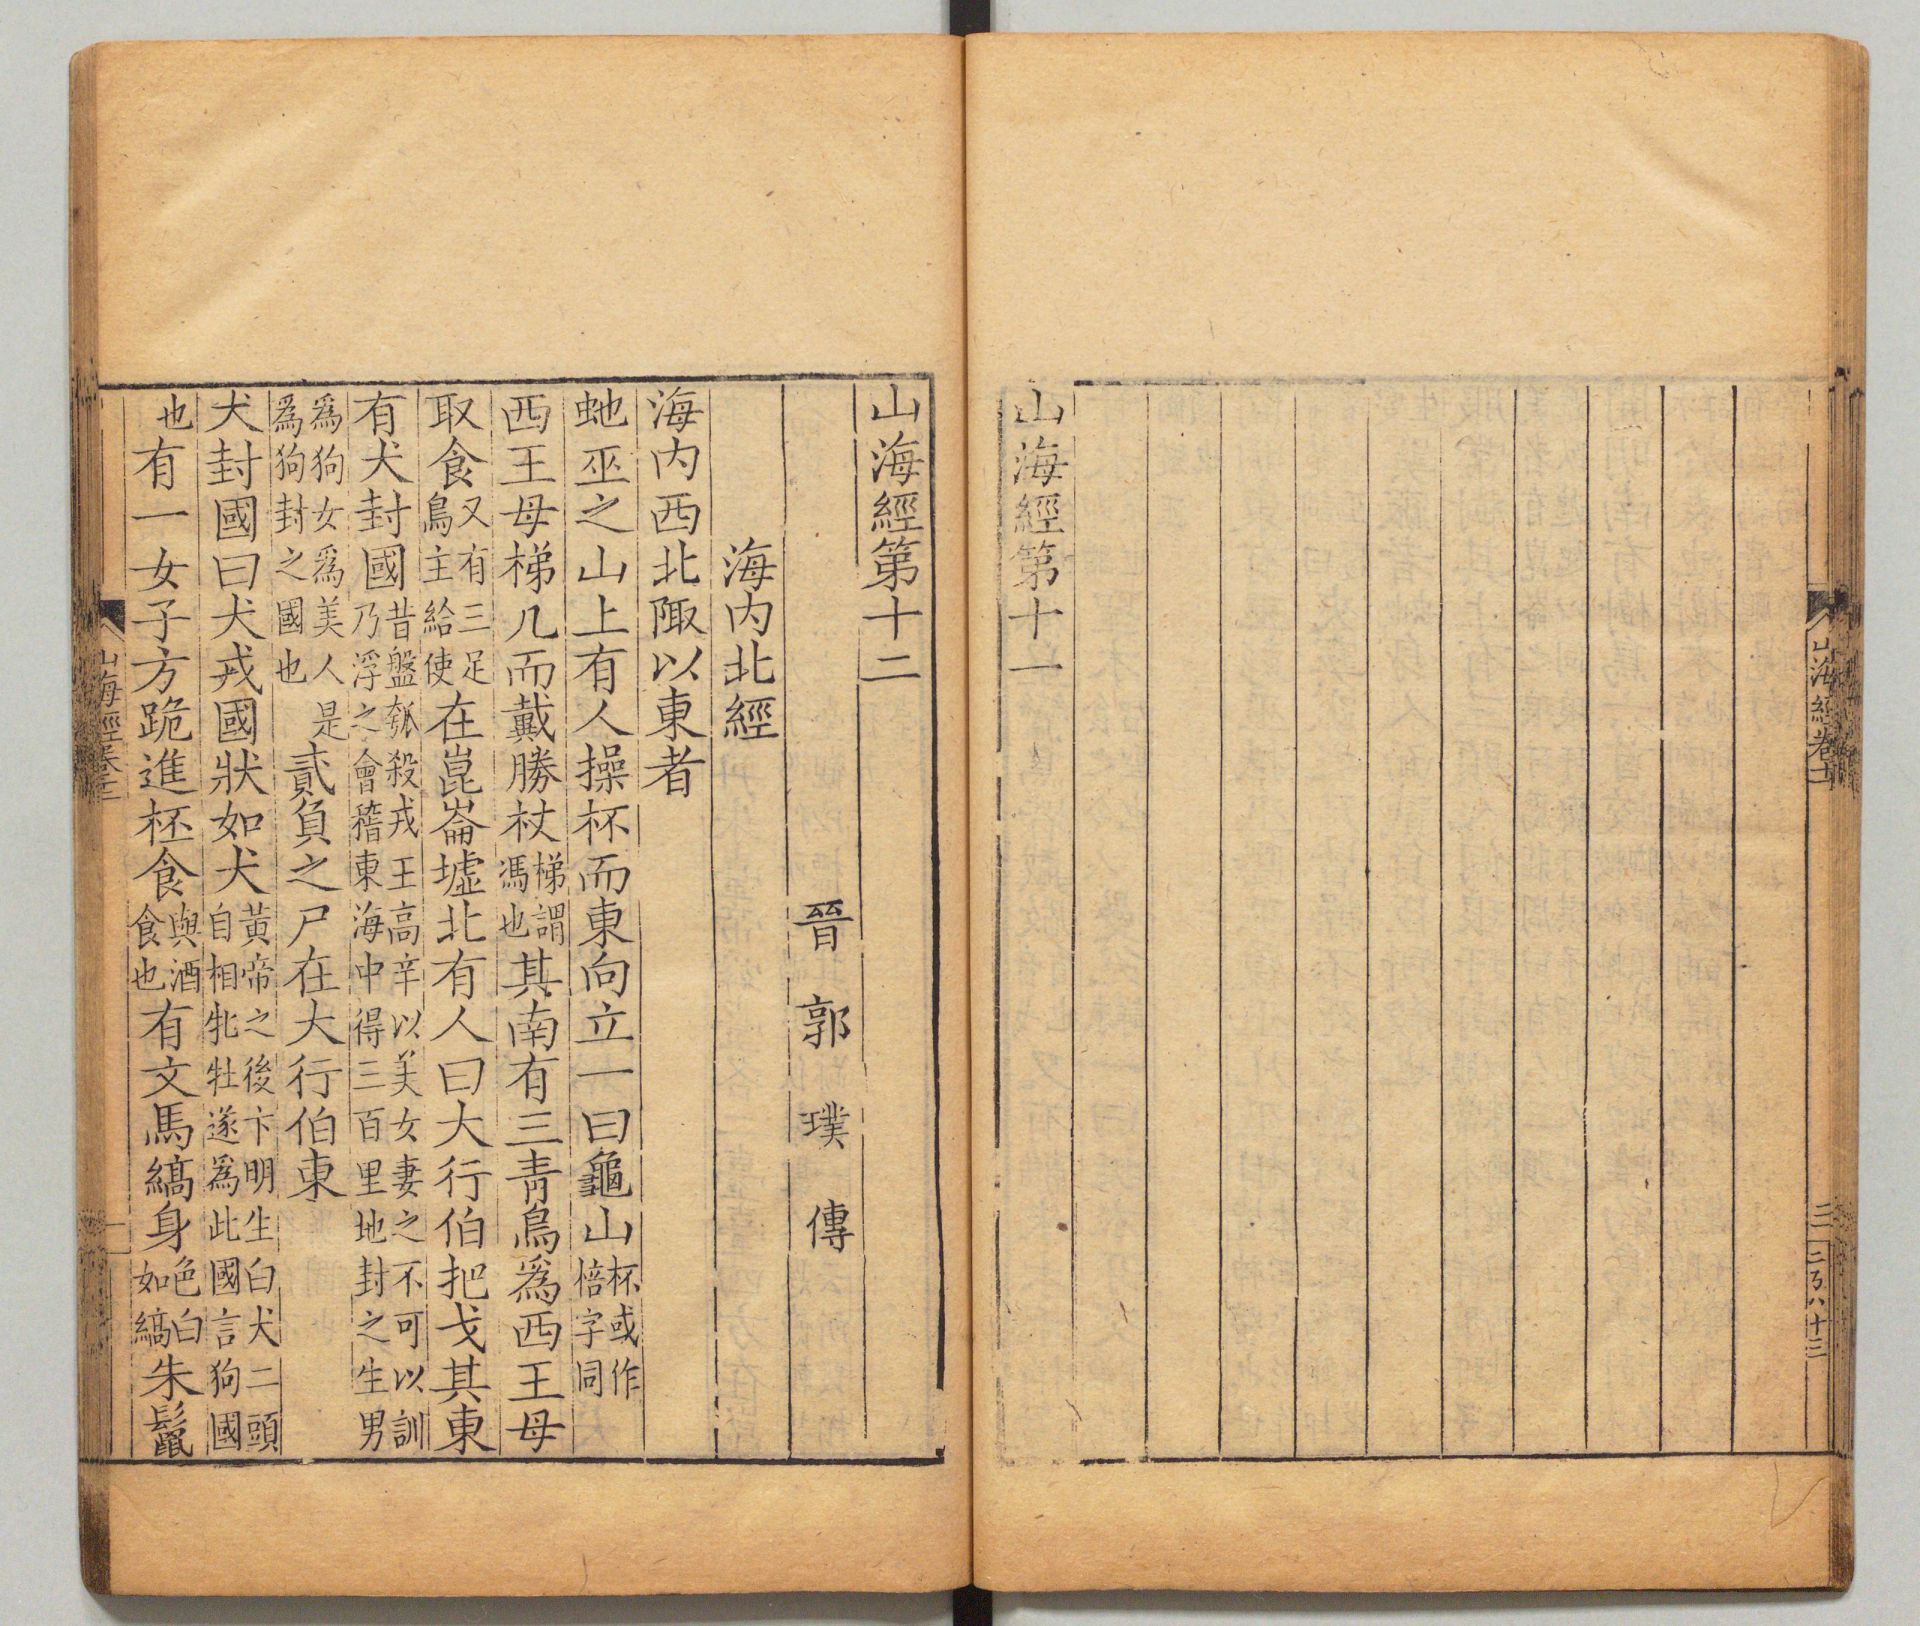 山海經卷十一
三
二百八十三
山海經第十一
山海經第十二
晉郭璞傳
海内北經
海内西北陬以東者
虵巫之山上有人操杯而東向立一曰龜山杯或作
棓字同
西王母梯几而戴勝杖梯謂
馮也其南有三青鳥爲西王母
取食又有三足
鳥主給使在崑崙墟北有人曰大行伯把戈其東
有犬封國昔盤瓠殺戎王高辛以美女妻之不可以訓
乃浮之會稽東海中得三百里地封之生男
爲狗女爲美人是
爲狗封之國也貳負之尸在大行伯東
犬封國曰犬戎國狀如犬黃帝之後卞明生白犬二頭
自相牝牡遂爲此國言狗國
也有一女子方跪進柸食與酒
食也有文馬縞身色白
如縞朱鬣
山海經卷十二
一